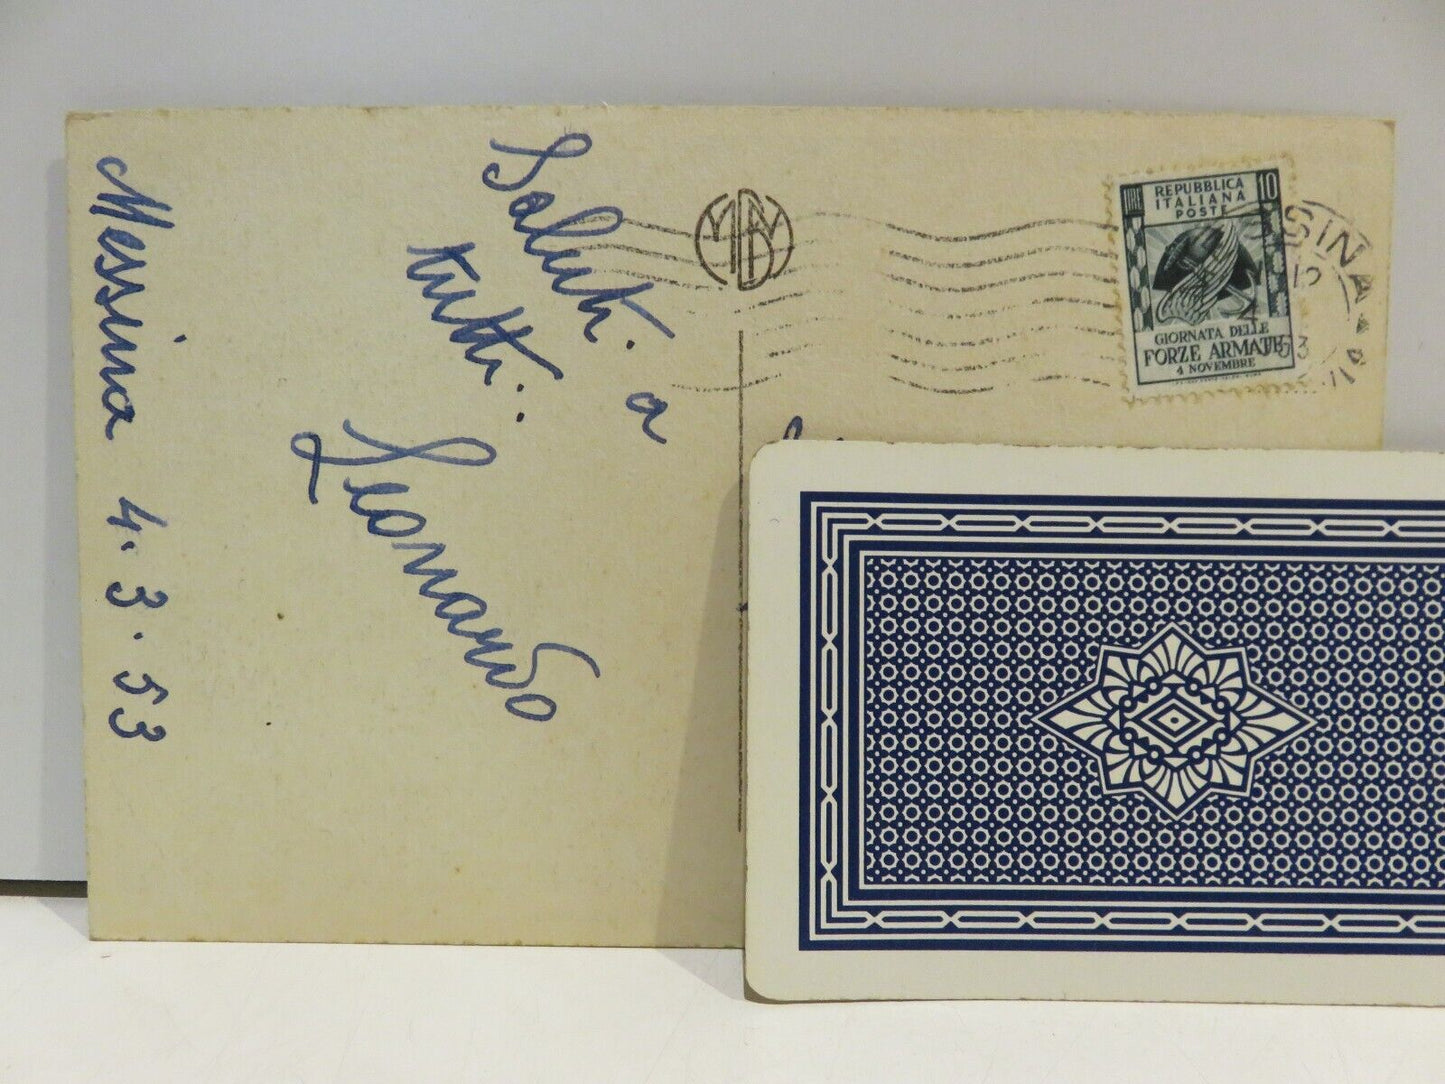 Messina 4.3.53
Saluti a
tutti.
Leonardo
LIRE 10
REPUBBLICA
ITALIANA
POSTE
GIORNATA DELLE
FORZE ARMATE
4 NOVEMBRE
SSINA
12
4
53